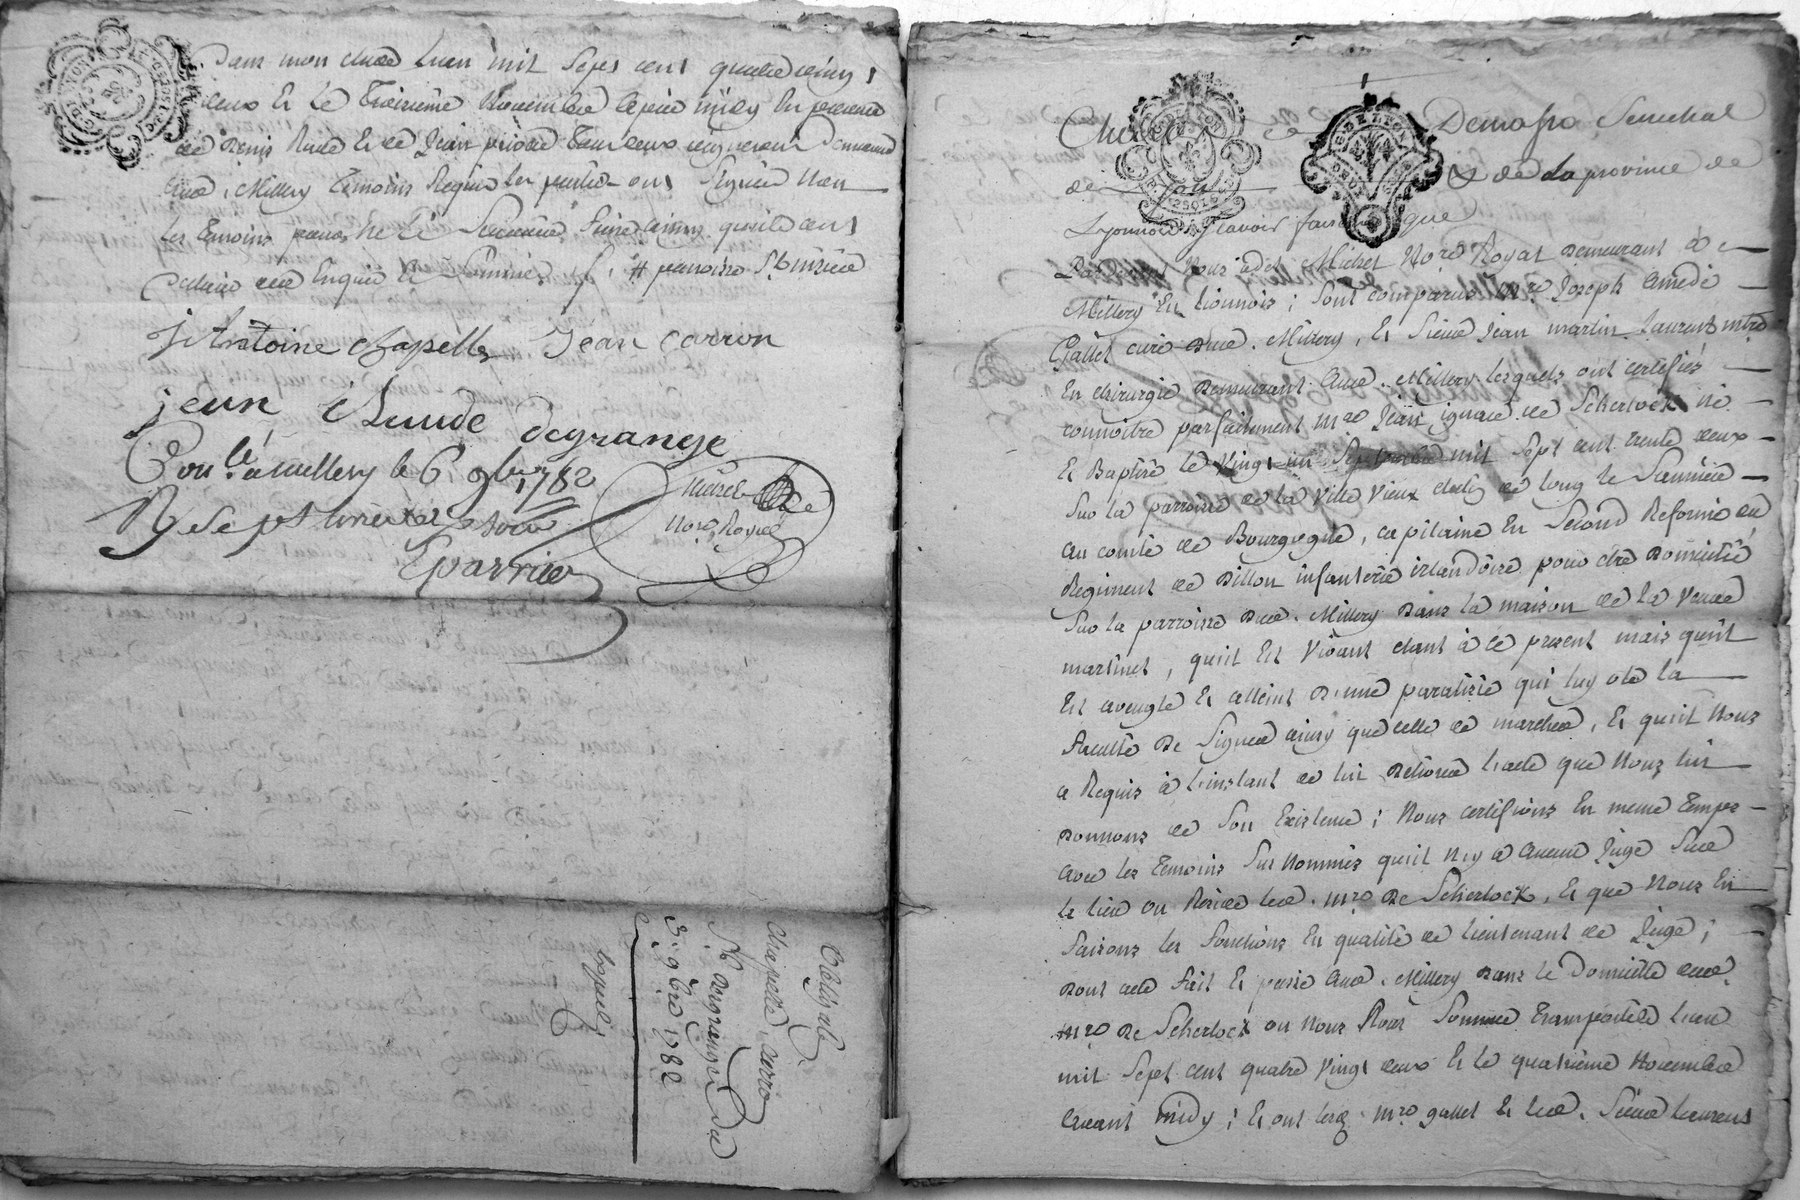 Dans mon etude Lan mil Sept cent quatre vingt
deux Et Le Troisieme Novembre apres midy En presence
de Denis Rude Et de Jean
dud. Millery Temoins Requis les parties ont Signées Non
les Temoins pour ne le Scavoir faire ainsy quils ont
declaré de ce Enquis Et Sommés
J Antoine chapelle Jean Carron
jean Claude degrange
Conlé a millery le 6 9bre 1782
R/ Sept livres dix sols
Eparvier
Michel
Nore Royal
chapelle, carro
Sr degrange
3. 9bre 1782
Expedié
Demasso Senechal
de Lyon & de La province de
Lyonnois Scavoir faisons que
Pardevant Nous Michel Nore Royal Demeurant à
Millery En Lionnois ; Sont comparus Mre Joseph Amedé
Gallet curé dud. Millery, Et Sieur Jean martin Laurent mtre
En chirurgie Demeurant aud. Millery lesquels ont certifiés
connoitre parfaitement Mre Jean ignace de Scherlock né
Et Baptisé le Vingt un Septembre mil Sept cent trente deux
Sur la parroisse de la Ville Vieux de Long le Saunier
au comté de Bourgogne, capitaine En Second Reformé au
Regiment de Dillon infanterie irlandoise pour etre Domicilié
Sur la parroisse dud. Millery Dans la maison de la Veuve
martinet, qu'il Est Vivant etant à ce present mais qu'il
Est aveugle Et atteint D'une paralisie qui luy ote la
faculté De Signer ainsy que celle de marcher, Et qu'il Nous
a Requis à l'instant de lui Delivrer l'acte que Nous lui
Donnons de Son Existence ; Nous certifions En meme Temps
avec les Temoins Sus Nommés qu'il n'y a aucun Juge Sur
le lieu ou Reside led. Mre De Scherlock, Et que Nous En
faisons les fonctions En qualité de Lieutenant de Juge ;
Dont acte fait Et passé aud. Millery Dans le Domicille dud.
Mre De Scherlock ou Nous Nous Sommes Transportés L'an
mil Sept cent quatre Vingt deux Et le quatrieme Novembre
avant midy ; Et ont lesd. Mre gallet Et led. Sieur Laurent